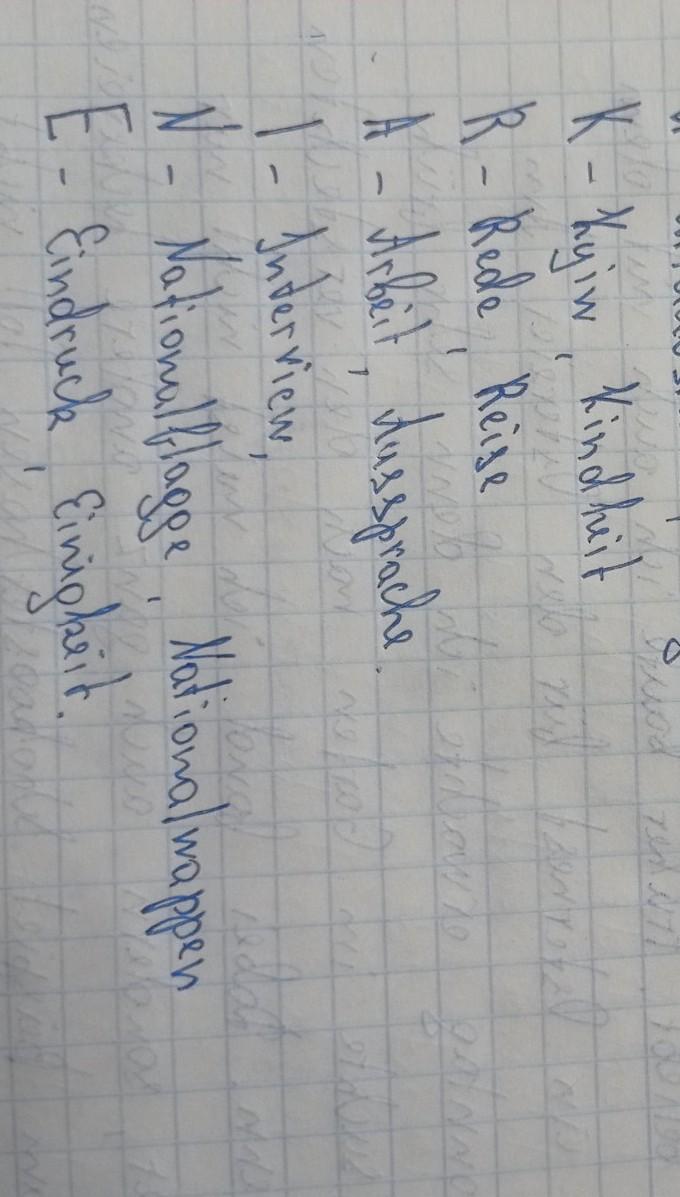 K - Kyjiw, Kindheit
R - Rede, Reise
A - Arbeit, Aussprache.
I - Interview,
N - Nationalflagge, Nationalwappen
E - Eindruck, Einigkeit.